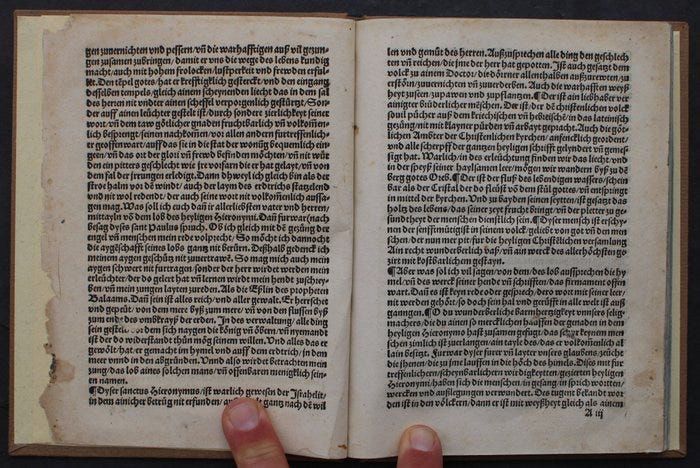 gen zuuernichten vnd pessern/ vñ die warhafftigen auß vil gezun-
gen zusamen zubringen/ damit er vns die wege des lebens kundig
macht/ auch mit hohen frolocken/ lustperkeit vnd frewden erfül-
let. Den tẽpel gotes/ hat er krefftigklich gesterckt/ vnd den eingang
desselben tempels/ gleich ainem scheynenden liecht das in dem sal
des herren nit vndter ainen scheffel verporgenlich gestürtzt/ Son-
der auff ainen lüchter gestelt ist/ durch sonder zierlichkeyt seiner
wort/ vñ dem taw götlicher gnaden fruchtbarlich vñ volkomẽn-
lich besprengt. seinen nachkomen/ vor allen andern furtreffenlich-
er geoffenwart/ auff das sie in die stat der wonũg bequemlich ein-
gen/ vñ das ort der glori vñ frewd befinden möchten/ vñ nit wür
den ein pitters geschlecht wie jre vorfarn die er hat gelayt/ vñ von
dem fal der jrrungen erledigt. Dann dhweyl ich gleich bin als der
stro halm vor dẽ windt/ auch der laym des erdtrichs statzelend
vnd nit wol redendt/ der auch seiner wort nit volkomenlich aussa-
gen mag. Was sol ich euch dañ jr allerliebsten vater vnd herren/
mittayln võ dem lob des heyligen Hieronymi. Dañ furwar (nach
besag dyses sant Paulus spruch. Ob ich gleich mit dẽ gezüng der
engel vñ menschen mein rede volprecht/ So möcht ich dannocht
die aygeschafft seines lobs gantz nit berürn. Deßhalb gedenck ich
meinem aygen geschütz nit zuuertrawẽ. So mag mich auch mein
aygen schwert nit furtragen/ sonder der herr wirdet werden mein
erleuchter/ der do gelert hat vñ lernen wirdt mein hendt zuschrey-
ben/ vñ mein zungen layten zureden. Als die Eßlin des propheten
Balaams. Dañ sein ist alles reich/ vnd aller gewalt. Er herschet
vnd gepeüt/ von dem mere byß zum mere/ vñ von den flussen byß
zum ende des vmbkrayß der erden. In des verwaltung/ alle ding
sein gestelt. vor dem sich naygen die künig vñ öbern/ vñ nyemandt
ist der do widerstandt thün mög seinem willen. Vnd alles das er
gewölt/ hat er gemacht im hymel vnd auff dem erdtrich/ in dem
mere vnnd in den abgründen. Vnnd also wirdet betrachten mein
zung/ das lob aines solchen mans/ vñ offenbaren meniklich sein-
en namen.
¶Dyser sanctus Hieronymus/ ist warlich gewesen der Istahelit/
in dem ainicher betrüg nit erfunden/ gantz nach dẽ wil
len vnd gemüt des herren. Außzusprechen alle ding den geschlech
ten vñ reichen/ die jme der herr hat gepotten. Ist auch gesatzt dem
volck zu ainem Doctor/ die dörner allenthalben außzurewten/ zu
erstõrn/ zuuernichten vñ zuuerderben. Auch die warhafften weyß
heyt zuseen/ zupawen vnd zupflantzen. ¶Der ist ain liebhaber ver
ainigter brüderlicher mẽschen. Der ist/ der dẽ christenlichen volck
souil pücher auß dem kriechischen vñ hebreischẽ/ in das lateinisch
gezüng/ nit mit klayner pürden vñ arbayt gepracht. Auch die göt-
lichen Ambter der Christenlichen kyrchen/ ansencklich geordent/
vnd alle scherpff der gantzen heyligen schrifft gelyndert vñ gemes-
sigt hat. Warlich/ in des erleüchtung finden wir das liecht/ vnd
in der speyß seiner haylsamen leer/ mögen wir wandern byß zu dẽ
berg gottes Oreb. ¶Der ist der fluß des lebendigen wassers/ schein
bar als der Cristal der do fleüst võ dem stül gottes/ vñ entspringt
in mittel der kyrchen. Vnd zu bayden seinen seytten/ ist gesatzt das
holtz des lebens/ das seiner zeyt frucht bringt/ vñ der pletter zu ge-
sundtheyt der menschen dienstlich sein. ¶Dyser mensch ist erschy-
nen der senfftmütigist in seinem volck/ geliebt von got vñ den men
schen/ der nun mer pit fur die heyligen Christlichen versamlung
Ain recht wunderbarlich daß/ vñ ain werck des allerhöchsten ge-
zirt mit kostbarlichem gestayn.
¶Aber was sol ich vil sagen/ von dem/ des lob aussprechen die hy
mel/ vñ des werck seiner hende vñ schrifften/ das firmament offen
wart. Dañ es ist keyn rede oder gesprech/ dero wort mit seiner leer/
nit werden gehört/ so doch sein hal vnd gerüff in alle welt ist auß
ganngen. ¶O du wunderberliche barmhertzigkeyt vnnsers selig-
machers/ die du ainen so merrcklichen hauffen der genaden in dem
heyligen Hieronymo hast zusamen gefügt/ das seher keynen men
schen zimlich ist zuerlangen/ ain tayle des/ das er volkomenlich al
lain besitzt. Furwar dyser furer vñ layter vnsers glaubens/ zeücht
die jhenen/ die zu jme lauffen in die höch des himels. Dises mit fur
treffenlichen/ scheynbarlichen wirdigkeytten/ gezierten heyligen
Hieronymi/ haben sich die menschen/ in gesang/ in sprich wortten/
wercken vnd außlegungen verwundert. Des tugent bekandt wor
den ist in den völckern/ dann er ist mit weyßheyt gleich als ainem
A iij